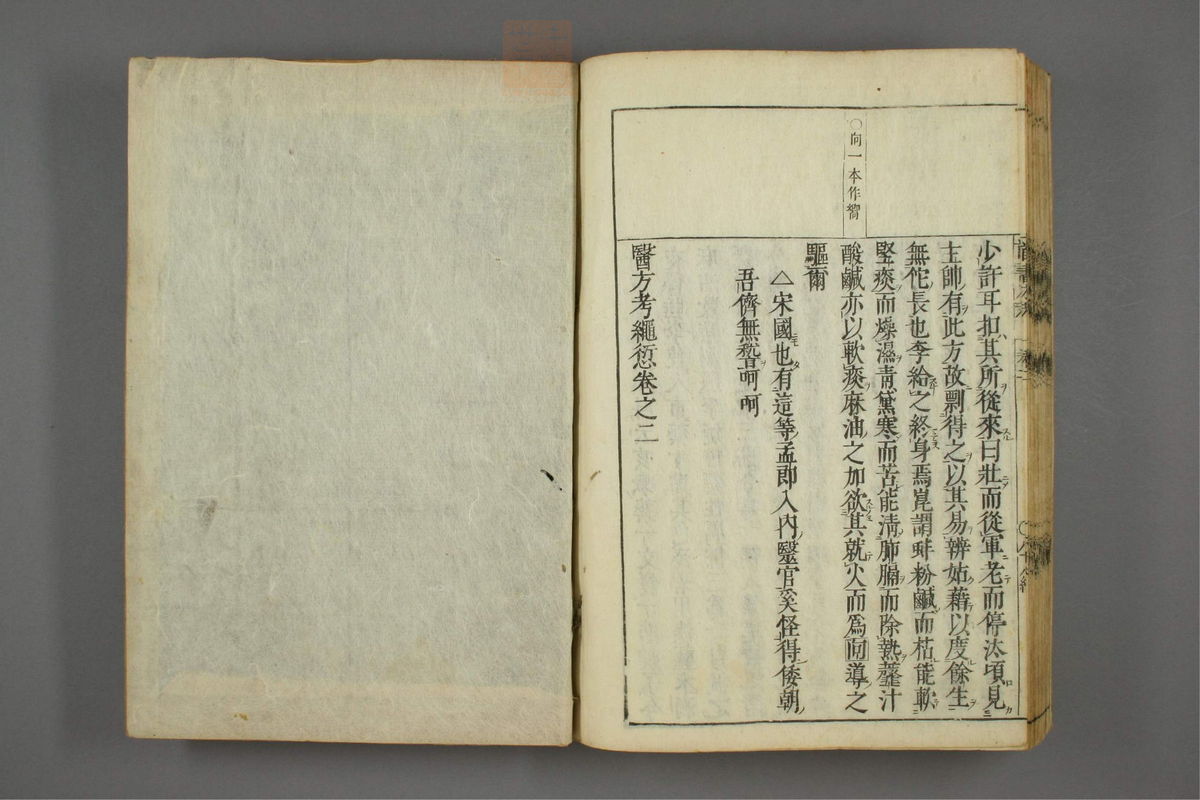 ○向一本作嚮
少許耳扣其所從來曰壯而從軍老而停汰頃見
主帥有此方故剽得之以其易辨姑藉以度餘生
無佗長也李給之終身焉崑謂蚌粉鹹而枯能軟
堅痰而燥濕青黛寒而苦能清肺膈而除熱虀汁
酸鹹亦以軟痰麻油之加欲其就火而爲向導之
驅爾
△宋國也有這等孟即入內毉官奚怪得倭朝
吾儕無
呵呵
醫方考繩愆卷之二